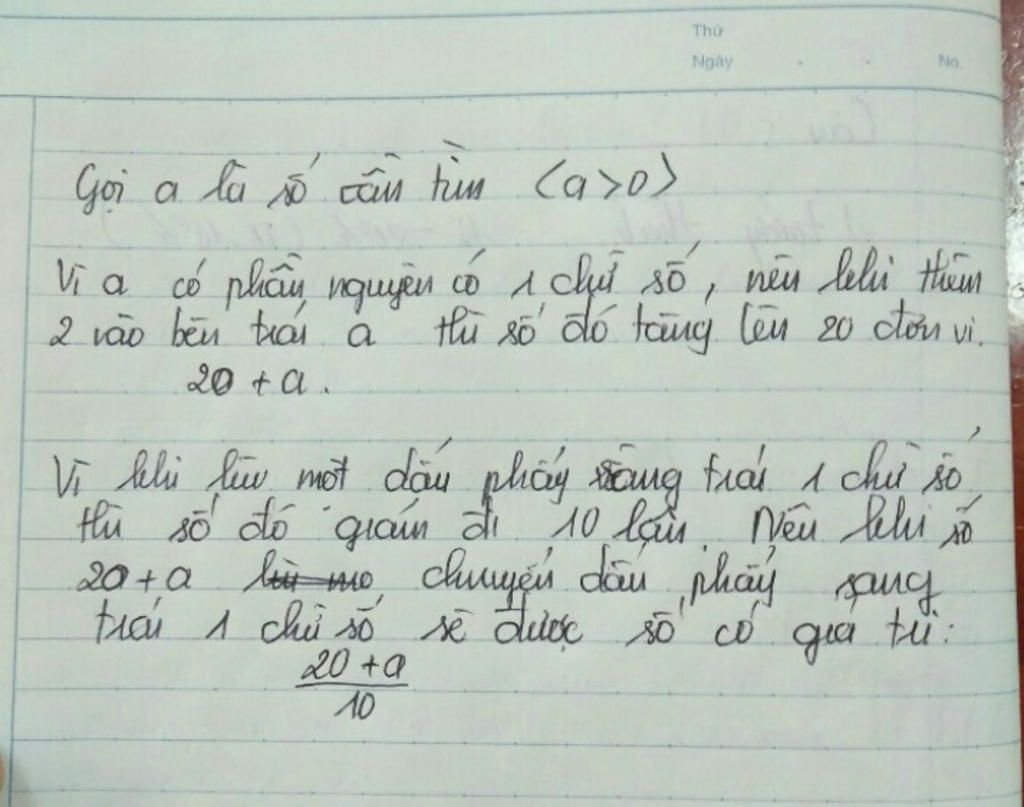 Thứ
Ngày . . No.
Gọi a là số cần tìm (a>0)
Vì a có phần nguyên có 1 chữ số, nên khi thêm
2 vào bên trái a thì số đó tăng lên 20 đơn vị.
20 + a.
Vì khi lùi một dấu phẩy sang trái 1 chữ số
thì số đó giảm đi 10 lần. Nên khi số
20 + a chuyển dấu phẩy sang
trái 1 chữ số sẽ được số có giá trị:
20 + a
10